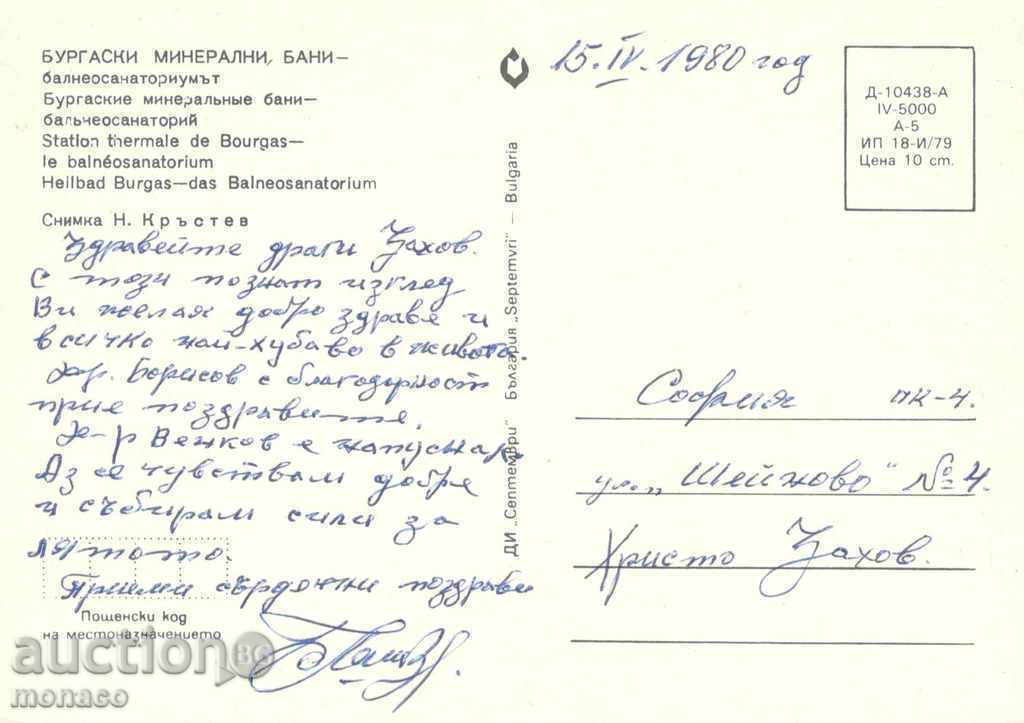 БУРГАСКИ МИНЕРАЛНИ БАНИ—
балнеосанаториумът
Бургаские минеральные бани—
бальнеосанаторий
Station thermale de Bourgas—
le balnéosanatorium
Heilbad Burgas—das Balneosanatorium
Снимка Н. Кръстев
15.IV.1980 год
Д-10438-А
IV-5000
А-5
ИП 18-И/79
Цена 10 ст.
Здравейте драги Цахов.
С този познат изглед
Ви желая добро здраве и
всичко най-хубаво в живота.
Борисов с благодарност
прие поздравите.
Д-р Вежков е напуснал.
Аз се чувствам добре
и събирам сили за
лятото.
Приеми сърдечни поздрави
Пощенски код
на местоназначението
ДИ „Септември" България „Septemvri" — Bulgaria
София пк-4.
ул. „Шейново" № 4.
Христо Цахов.
auction.BG
monaco